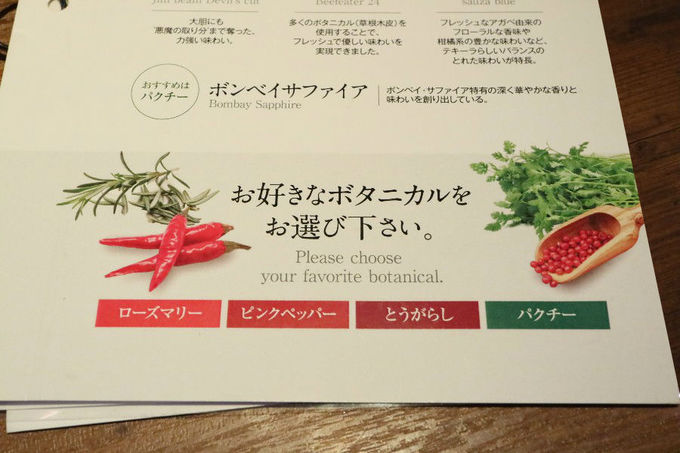 Jim beam Devil's cut
Beefeater 24
sauza blue
大胆にも
"悪魔の取り分"まで奪った、
力強い味わい。
多くのボタニカル（草根木皮）を
使用することで、
フレッシュで優しい味わいを
実現できました。
フレッシュなアガベ由来の
フローラルな香味や
柑橘系の豊かな味わいなど、
テキーラらしいバランスの
とれた味わいが特長。
おすすめは
パクチー
ボンベイサファイア
Bombay Sapphire
ボンベイ・サファイア特有の深く華やかな香りと
味わいを創り出している。
お好きなボタニカルを
お選び下さい。
Please choose
your favorite botanical.
ローズマリー
ピンクペッパー
とうがらし
パクチー